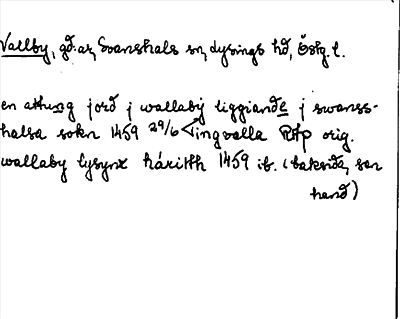 Vallby, gd.ar, Svanshals sn, Lysings hd, Östg. l.
en athung jord j wallaby liggiande j swans-
halsa sokn 1459 29/6 Tingvalla RAp orig.
wallaby lysynx häritth 1459 ib. (baksida, sen
hand)